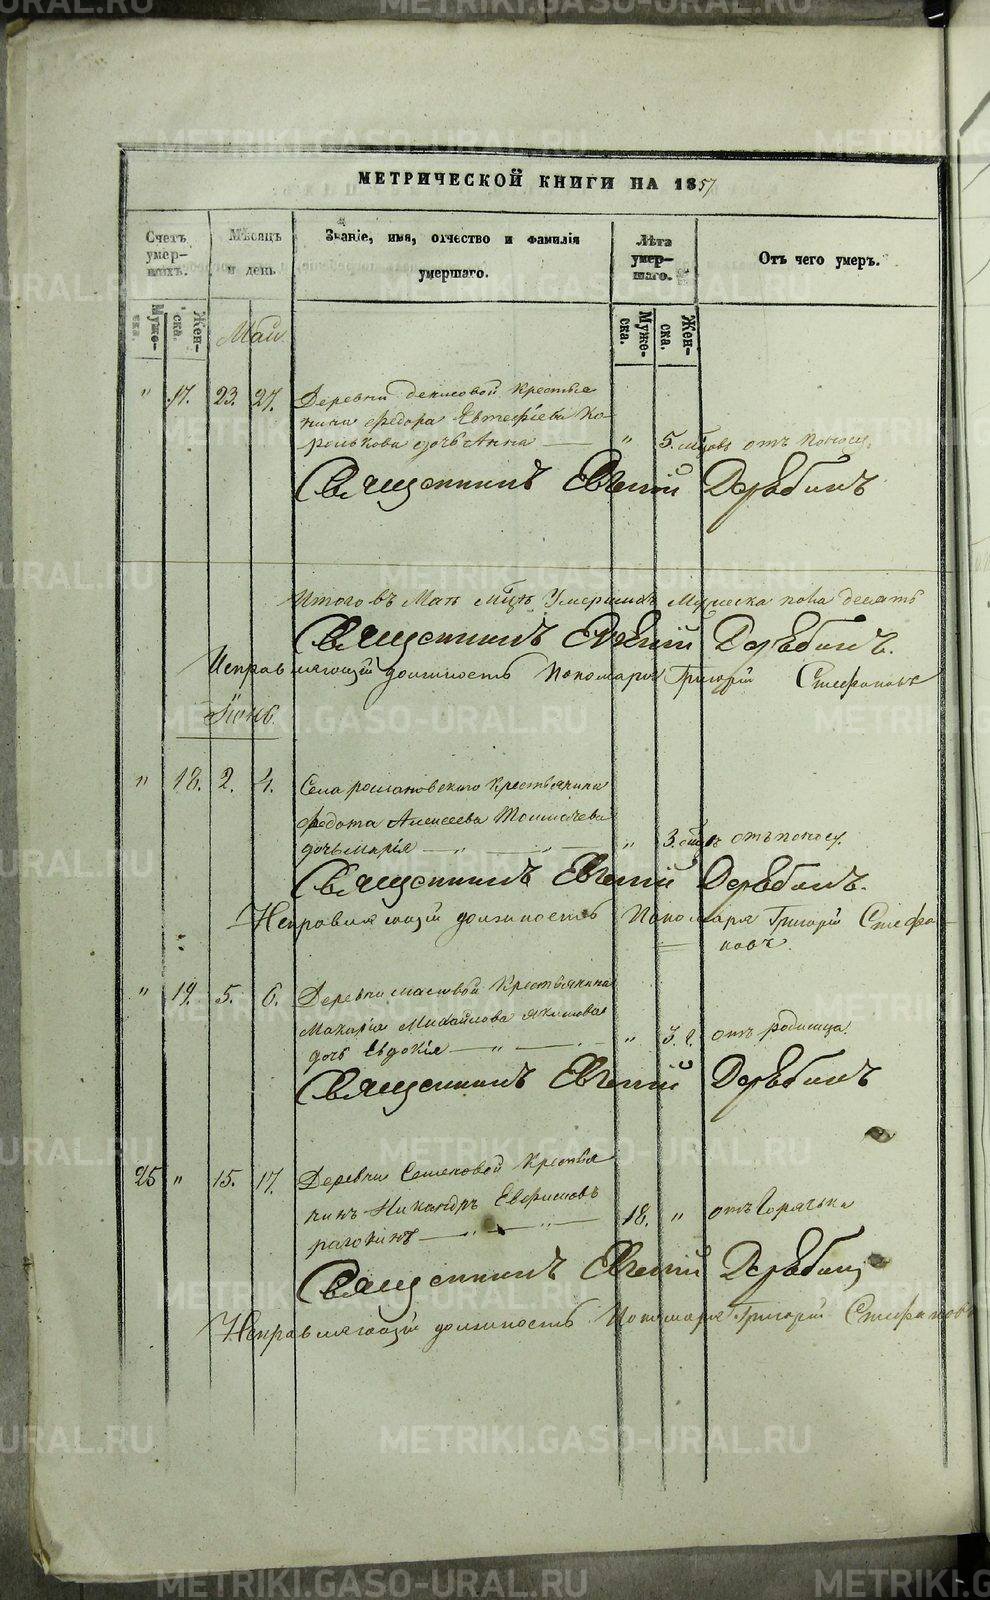 МЕТРИЧЕСКОЙ КНИГИ НА 1857
Счетъ умер-шихъ.
Мѣсяцъ и день.
Званіе, имя, отчество и фамилія умершаго.
Лѣта умер-шаго.
Отъ чего умеръ.
Муже-ска.
Жен-ска.
Май
Муже-ска.
Жен-ска.
" 17. 23. 27. Деревни денисовой Крестья
нина Федора Евтефіева Ко
ролькова дочь Анна — " 5. мцовъ отъ поносу.
Священникъ Евгений Дерябинъ
Итого въ Маѣ мцѣ Умершихъ Мужеска пола десять
Священникъ Евгений Дерябинъ.
Исправляющій должность Пономаря Григорій Стефановъ
Іюнь.
" 18. 2. 4. Села романовскаго Крестьянина
Федота Алексеева Толмачева
дочь Марія — " — " 3. мцъ отъ поносу.
Священникъ Евгений Дерябинъ.
Исправляющій должность Пономаря Григорій Стефа-
новъ.
" 19. 5. 6. Деревни масловой Крестьянина
Макарія Михайлова Якимова
дочь Евдокія — " — " 3. г. отъ родимца.
Священникъ Евгений Дерябинъ
25 " 15. 17. Деревни Семеновой Крестья
нинъ Никандръ Евфимовъ
рагозинъ — " — " — 18. " отъ Горячки
Священникъ Евгений Дерябинъ
Исправляющій должность Пономаря Григорій Стефановъ
METRIKI.GASO-URAL.RU